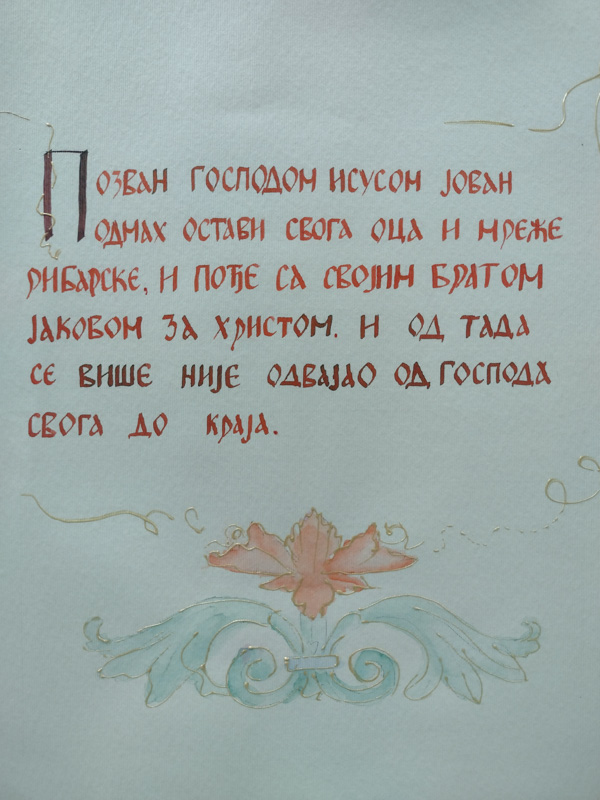 Позван Господом Исусом Јован
одмах остави свога оца и мреже
рибарске, и пође са својим братом
Јаковом за Христом. И од тада
се више није одвајао од Господа
свога до краја.